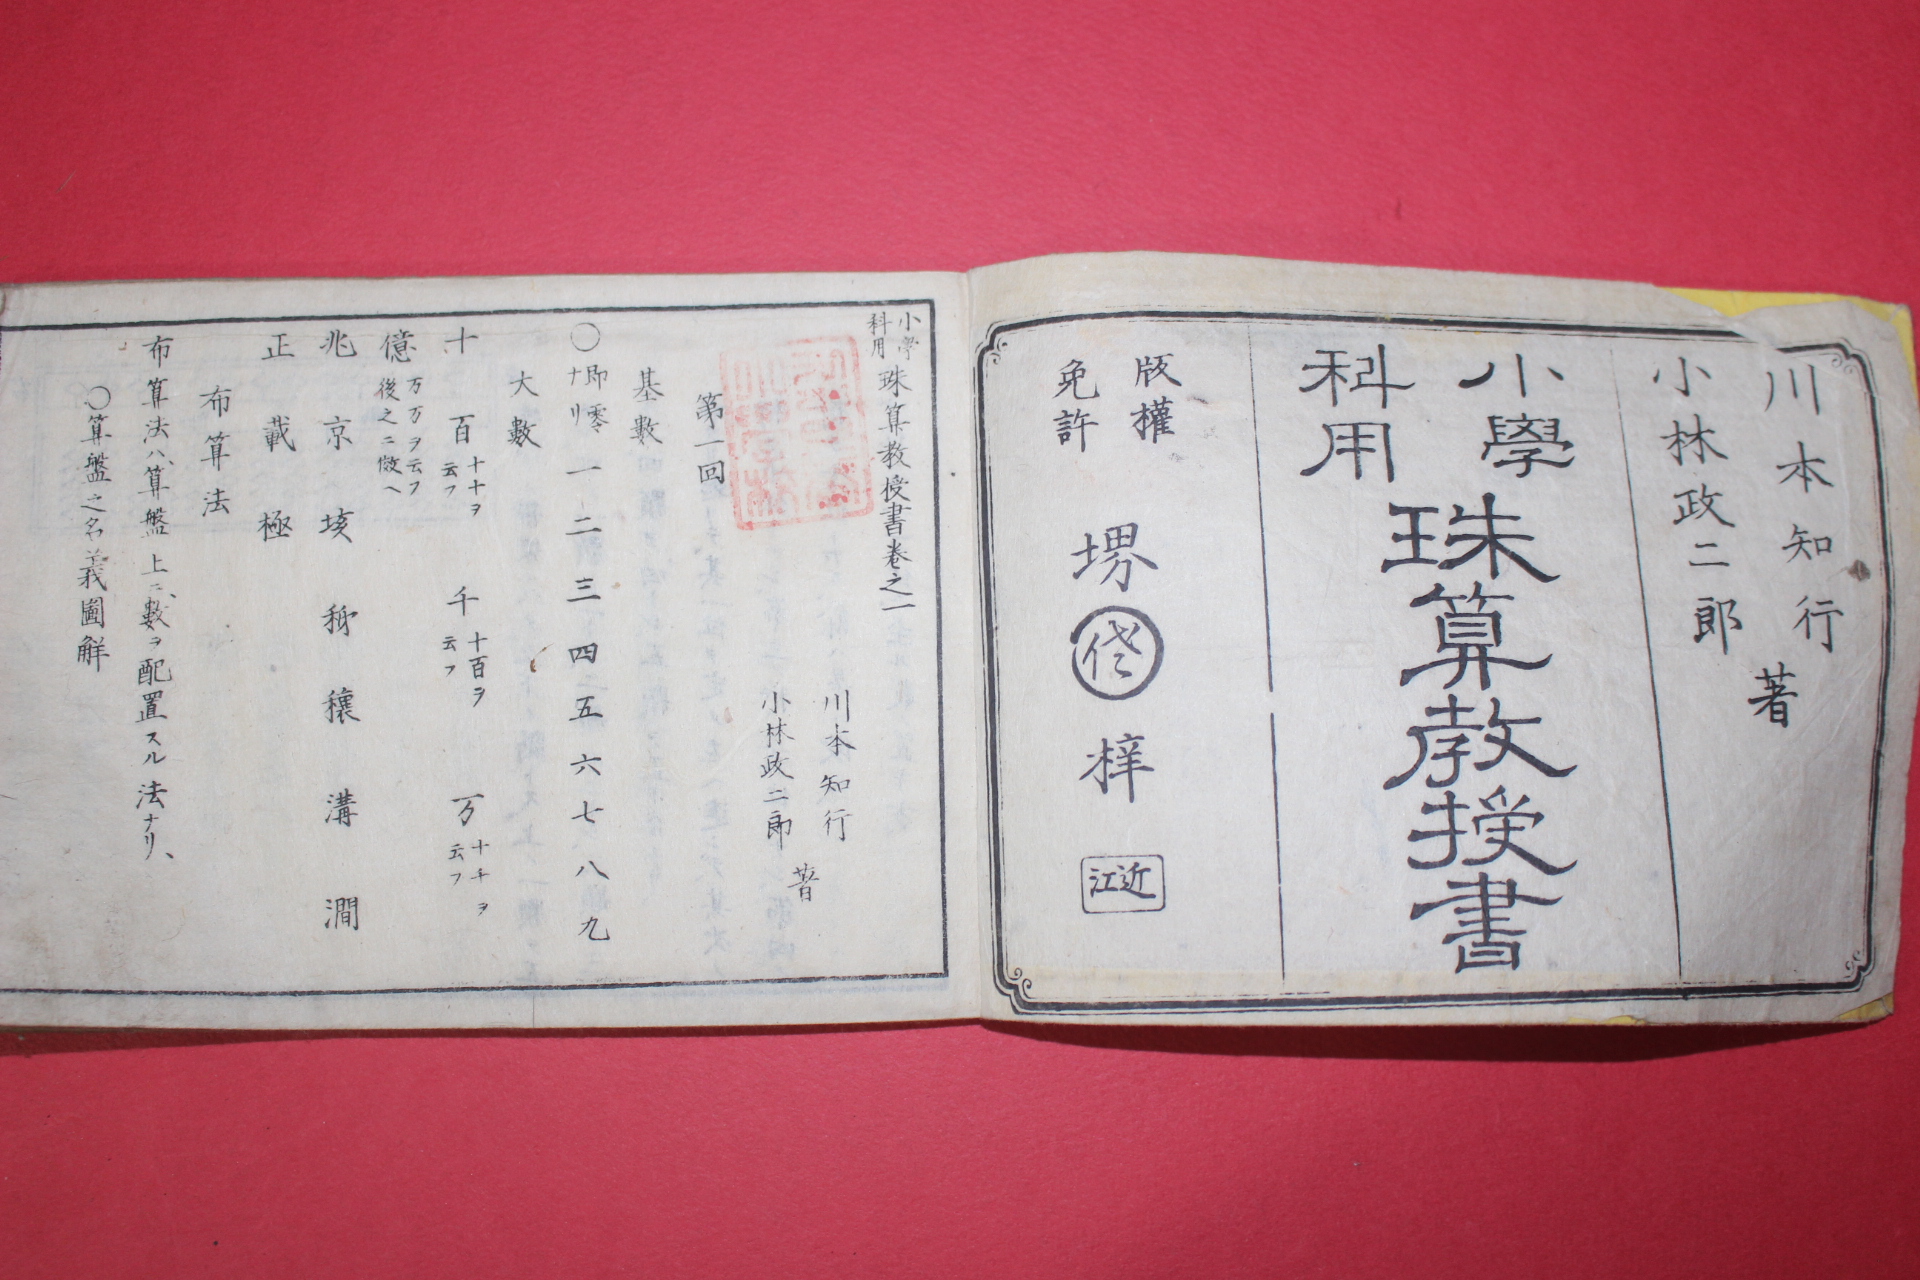 川本知行
小林政二郎
著
小學
科用
珠算教授書
版權
免許
堺
梓
近江
小學
科用
珠算教授書卷之一
川本知行
小林政二郎
著
第一回
基數
〇即零ナリ 一 二 三 四 五 六 七 八 九
大數
十 百十十ヲ云フ 千十百ヲ云フ 一万十千ヲ云フ
億万万ヲ云フ後之ニ倣ヘ
兆 京 垓 秭 穰 溝 澗
正 載 極
布算法
布算法ハ、算盤上ニ、數ヲ配置スル法ナリ、
〇算盤之名義圖解